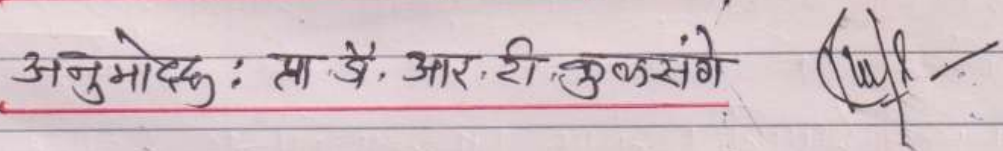 अनुमोदक : प्रा. डॉ. आर. टी. कुळसंगे